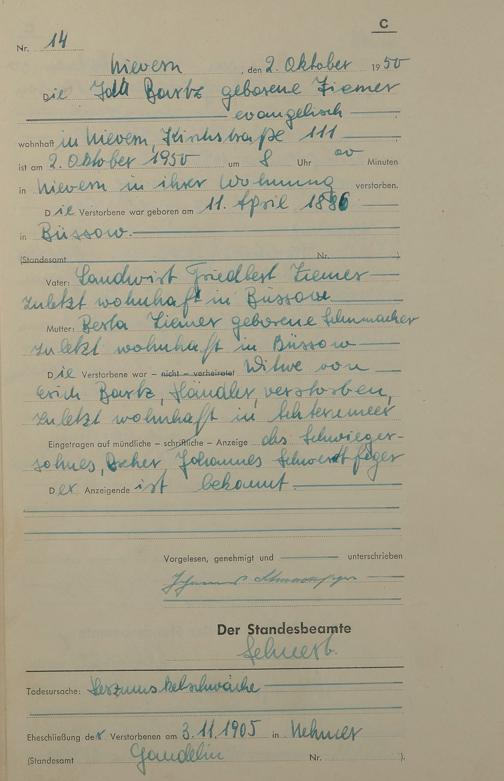 C
Nr. 14
Nievern, den 2. Oktober 1950
Die Ida Bartz geborene Ziemer
evangelisch
wohnhaft in Nievern, Kirchstraße 111
ist am 2. Oktober 1950 um 8 Uhr 00 Minuten
in Nievern in ihrer Wohnung verstorben.
Die Verstorbene war geboren am 11. April 1886
in Büssow.
(Standesamt Nr. )
Vater: Landwirt Friedbert Ziemer
zuletzt wohnhaft in Büssow
Mutter: Berta Ziemer geborene Schumacher
zuletzt wohnhaft in Büssow
Die Verstorbene war – nicht – verheiratet Witwe von
Erich Bartz, Händler, verstorben,
zuletzt wohnhaft in
Eingetragen auf mündliche – schriftliche – Anzeige des Schwieger-
sohnes, Johannes Schwertfeger
Der Anzeigende ist bekannt.
Vorgelesen, genehmigt und unterschrieben
Johannes Schwertfeger
Der Standesbeamte
Todesursache: Herzmuskelschwäche
Eheschließung der Verstorbenen am 3.11.1905 in
(Standesamt Nr. ).